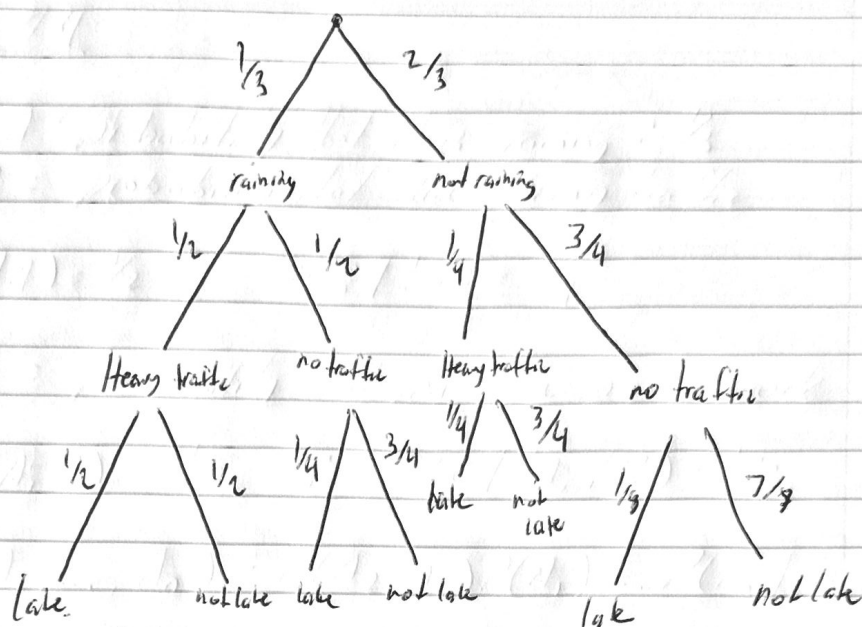 1/3 2/3
raining not raining
1/2 1/2 1/4 3/4
Heavy traffic no traffic Heavy traffic no traffic
1/2 1/2 1/4 3/4 1/4 3/4 1/8 7/8
late not late
late. not late late not late late not late